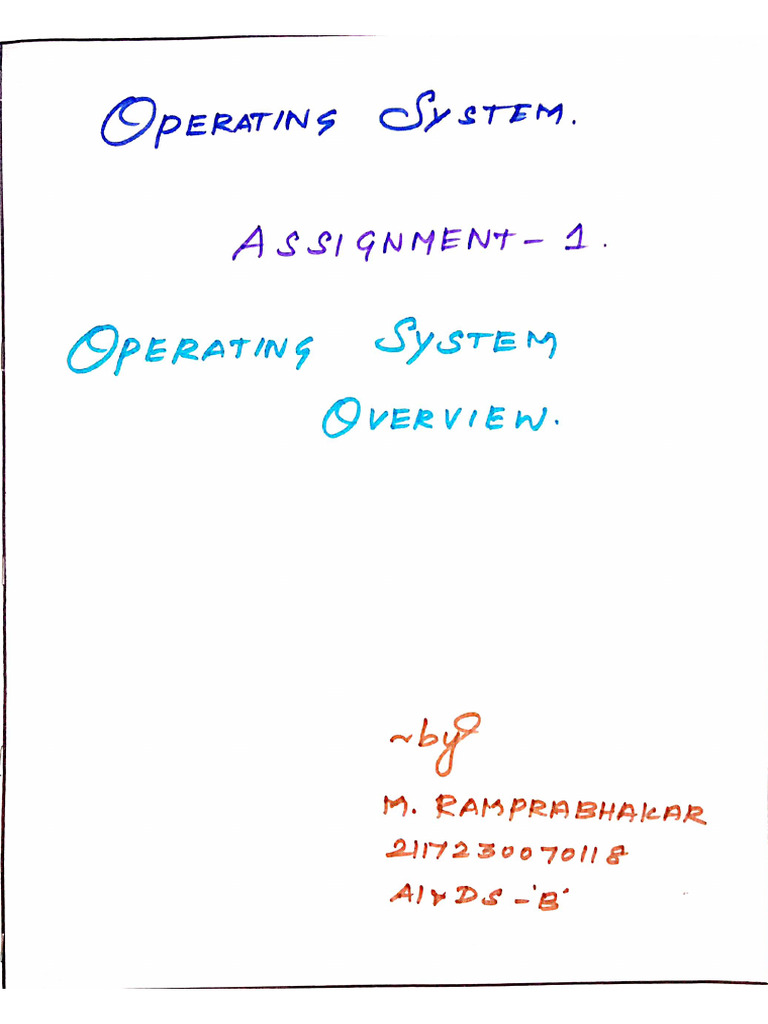 OPERATING SYSTEM.
ASSIGNMENT - 1.
OPERATING SYSTEM
OVERVIEW.
~by
M. RAMPRABHAKAR
2117230070118
AI&DS - 'B'